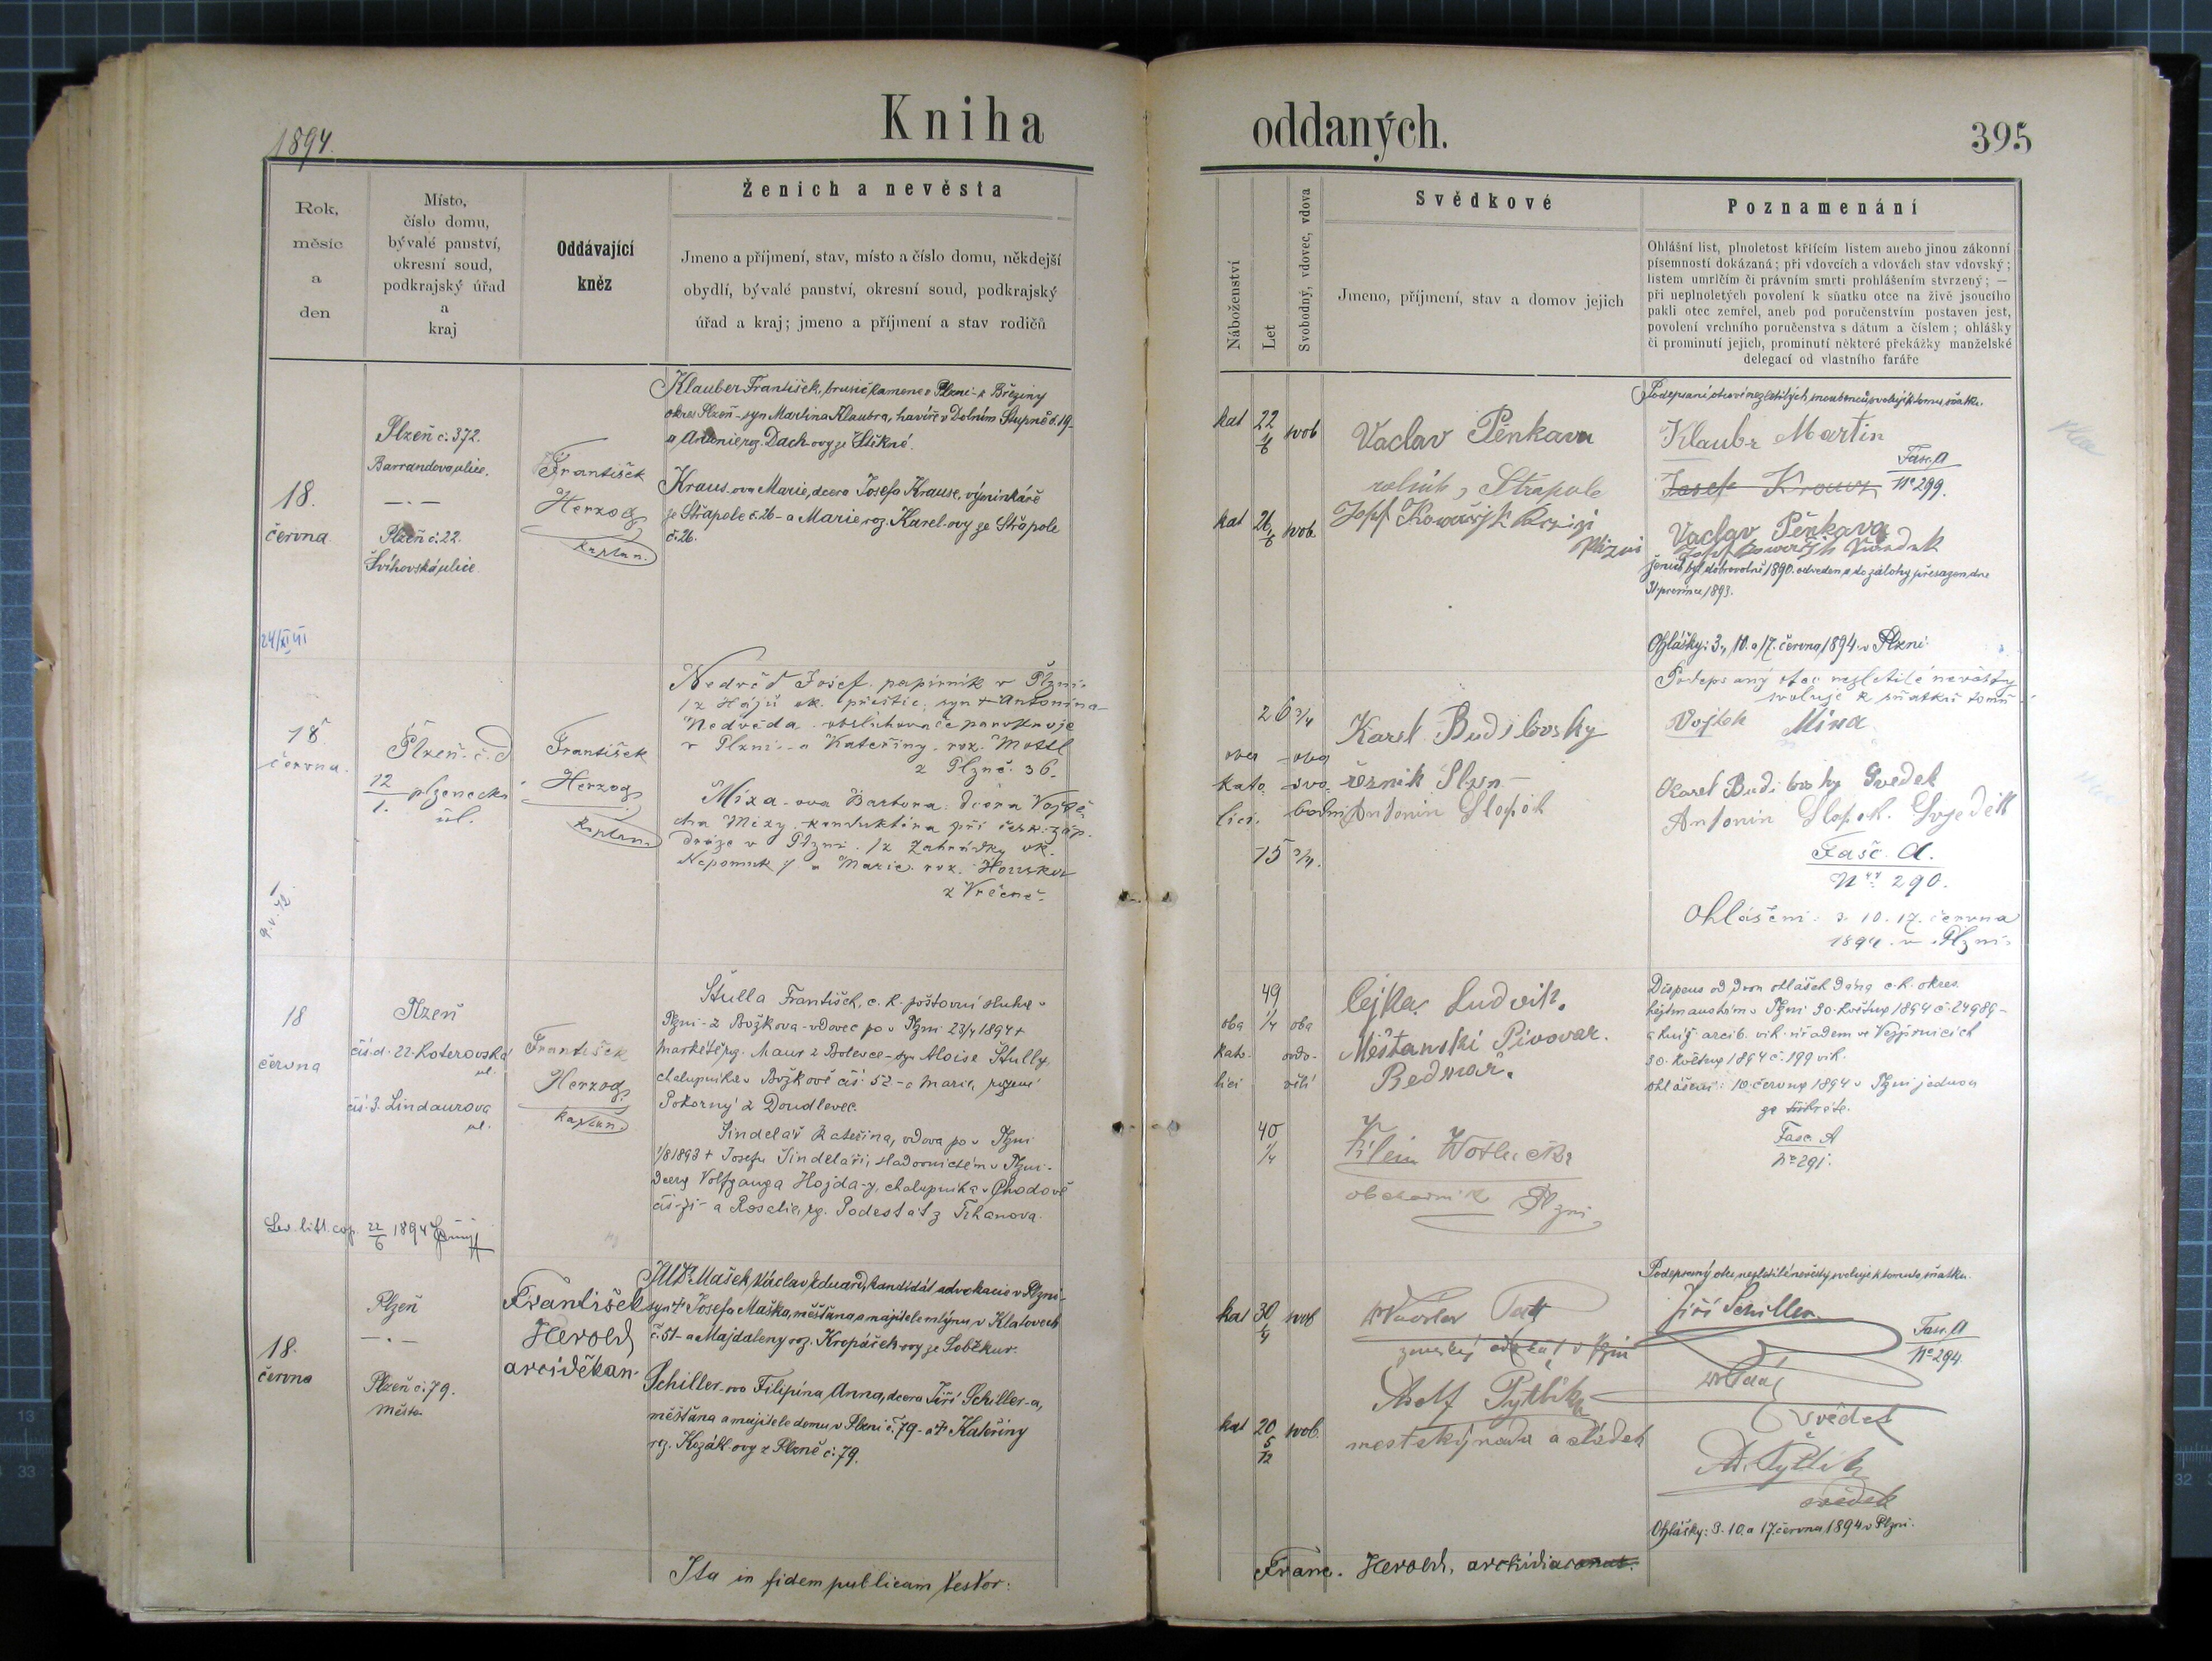 1894.
Kniha
oddaných.
395
Rok,
měsíc
a
den
Místo,
číslo domu,
bývalé panství,
okresní soud,
podkrajský úřad
a
kraj
Oddávající
kněz
Ženich a nevěsta
Jmeno a příjmení, stav, místo a číslo domu, někdejší
obydlí, bývalé panství, okresní soud, podkrajský
úřad a kraj; jmeno a příjmení a stav rodičů
Náboženství
Let
Svobodný, vdovec, vdova
Svědkové
Jmeno, příjmení, stav a domov jejich
Poznamenání
Ohlášní list, plnoletost křticím listem anebo jinou zákonní
písemností dokázaná; při vdovcích a vdovách stav vdovský;
listem umrlčím či právním smrti prohlášením stvrzený; —
při neplnoletých povolení k sňatku otce na živě jsoucího
pakli otec zemřel, aneb pod poručenstvím postaven jest,
povolení vrchního poručenstva s dátum a číslem; ohlášky
či prominutí jejich, prominutí některé překážky manželské
delegací od vlastního faráře
18.
června
Plzeň č. 372.
Barrandova ulice.
— · —
Plzeň č. 22.
Švihovská ulice.
František
Herzog
kaplan.
Klauber František, brusič kamene v Plzni - z Březiny
okres Plzeň - syn Martina Klaubra, havíře v Dolním Stupně č. 19 -
a Antonie roz. Dach-ovy ze Stěkné.
Kraus-ova Marie, dcera Josefa Krause, výminkáře
ze Střapole č. 26 - a Marie roz. Karel-ovy ze Střapole
č. 26.
kat 22 svob
kat 26 svob
Vaclav Pěnkava
rolník, Strapole
Klaubr Martin
Fasc. A
Josef Kraus No 299.
Vaclav Pěnkava
ženich byl dobrovolně 1890. odveden a do zálohy přesazen dne
31 prosince 1893.
Ohlášky: 3., 10. a 17. června 1894 v Plzni.
18
června.
Plzeň č. d
12
1. plzenecká
ul.
František
Herzog
kaplan
Nedvěd Josef. papírník v Plzni.
/z Hájů ok. přeštic, syn + Antonína
Nedvěda obsluhovače parostroje
v Plzni - a Kateřiny, roz. Mottl
z Plzně. 36.
Míxa-ova Barbora: dcera Vojtě-
cha Míxy konduktéra při česk. záp.
dráze v Plzni /z Zahrádky ok.
Nepomuk / a Marie. roz. Houska
z Vrčeně.
26 3/4
oba oba
kato- svo-
lici. bodni
15 3/4.
Karel Budilovsky
řezník Slzn
Antonin Slopok
Podepsaný otec nezletilé nevěsty
svoluje k sňatku tomu
Vojtěch Mixa
Karel Budilovsky Svedek
Antonin Slopok. Svjedek
Fasc. A.
No 290.
Ohlášení: 3. 10. 17. června
1894. v Plzni.
18
června
Plzeň
čís. d. 22. Koterovská
ul.
čís. 3. Lindaurova
ul.
František
Herzog
kaplan
Štulla František, c. k. poštovní sluha v
Plzni - z Božkova - vdovec po v Plzni 23/4 1894 +
Markétě roz. Maur z Bolevce - syn Aloise Štully,
chalupníka v Božkově čís. 52 - a Marie, rozené
Pokorný z Doudlevec.
Sindelář Kateřina, vdova po v Plzni
1/8 1893 + Josefu Sindeláři, sladovnickém v Plzni -
dcera Volfganga Hojda-y, chalupníka v Chodově
a Rosalie, rz. Podestát z Trhanova.
49
1/4
oba oba
kato- ovdo-
lici věli
40
1/4
Cejka Ludvik.
Měšťanski Pivovar.
Bednář.
Klein
obchodník Plzni
Dispens od dvou ohlášek dána c. k. okres.
hejtmanstvím v Plzni 30. května 1894 č. 24989 -
a kníž. arcib. vik. úřadem ve Vejprnicích
30. května 1894 č. 199 vik.
ohlášeni: 10. června 1894 v Plzni jednou
za třikráte.
Fasc. A
No 291.
22
6 1894
18.
června
Plzeň
— · —
Plzeň č. 79.
Město
František
Herold
arciděkan.
JUDr. Mašek Václav Eduard, kandidát advokacie v Plzni -
syn + Josefa Maška, měšťana a majitele mlýna v Klatovech
č. 51 - a Majdaleny roz. Kropáček-ovy ze Soběkur.
Schiller-ova Filipína Anna, dcera Jiří Schiller-a,
měšťana a majitele domu v Plzni č. 79 - a + Kateřiny
roz. Kozák-ovy z Plzně č. 79.
kat 30 svob
kat 20 svob.
5
12
Adolf Pytlík
mestský rada a sládek
Podepsaný otec nezletilé nevěsty svoluje k tomuto sňatku.
Jiří Schiller
Fasc. A
No 294.
svědek
Ad. Pytlík
svědek
Ohlášky: 3. 10. a 17. června 1894 v Plzni.
Ita in fidem publicam testor:
Franc. Herold, archidiaconus.